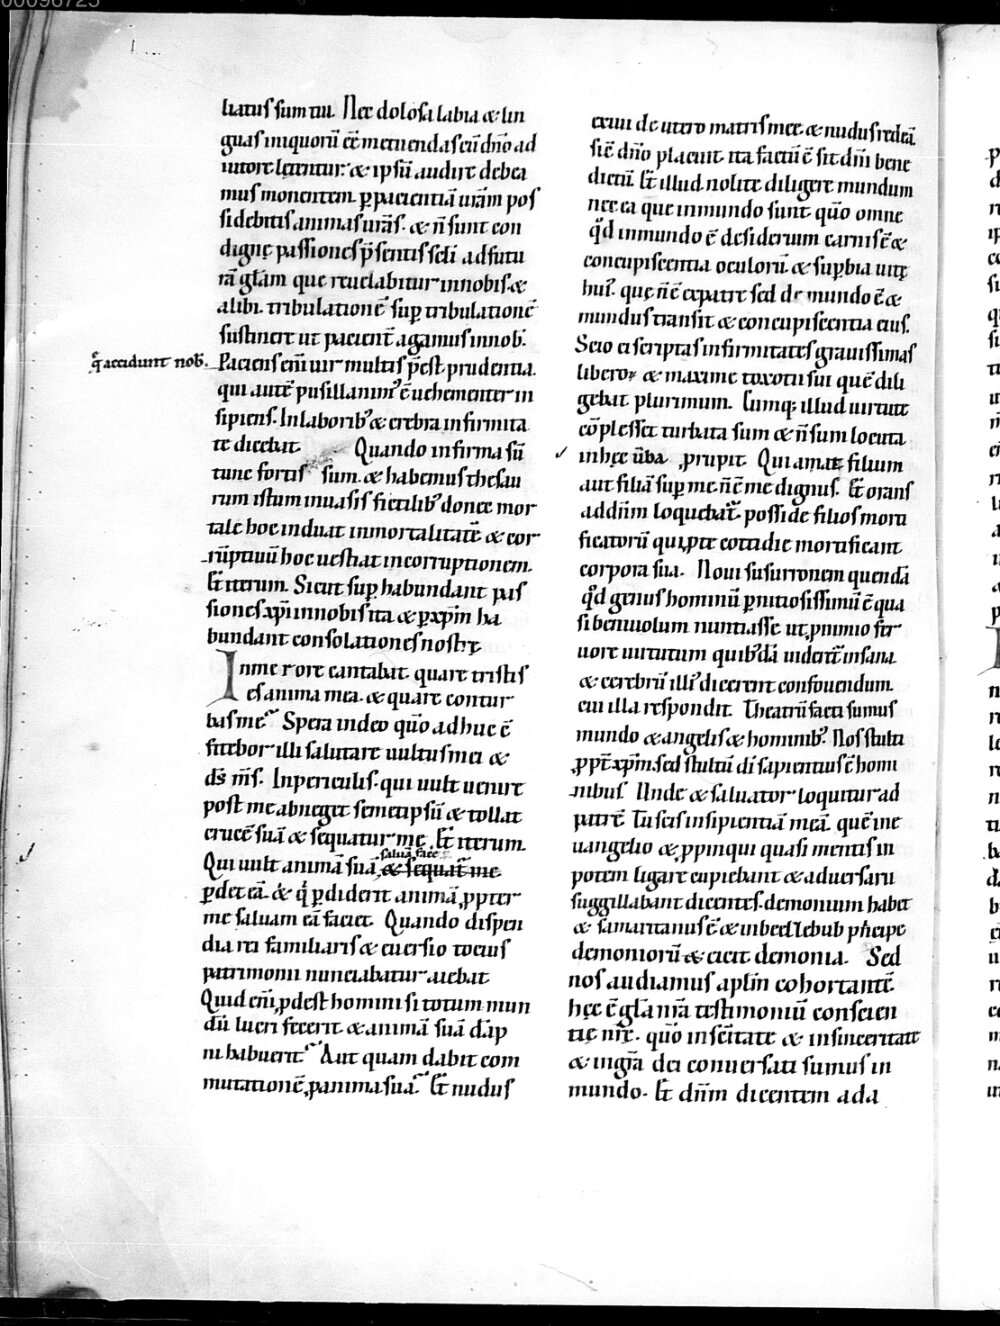 liatus sum tui. Nec dolosa labia & lin
guas iniquorũ eẽ metuenda seu dño ad
iutore leniuntur: & ipsũ audire debea
mus monentem. p̱ pacientiã urãm pos
sidebitis animas urãs. & ñ sunt con
digne passiones p̃sentis scli ad futu
rã glãm que reuelabitur in nobis. &
alibi. tribulationẽ sup̱ tribulationẽ
sustinere ut pacient̃ agamus in nob̃.
q̃ accidunt nob̃.
Paciens enĩ uir multis p̃est prudentia.
qui autẽ pusillanim᾽ ẽ uehementer in
sipiens. In laborib᾽ & crebra infirmita
te dicebat. Quando infirma sũ
tunc fortis sum. & habemus thesau
rum istum in uasis fictilib᾽ donec mor
tale hoc induat inmortalitatẽ & cor
ruptiuũ hoc uestiat incorruptionem.
Et iterum. Sicut sup̱ habundant pas
siones xp̃i in nobis ita & p̱ xp̃m ha
bundant consolationes nostrę
In merore cantabat. quare tristis
es anima mea. & quare contur
bas me᾽ Spera in deo quõ adhuc ẽ
fitebor illi salutare uultus mei &
ds̃ m̃s. In periculis. qui uult uenire
post me abneget semetipsũ & tollat
crucẽ suã & sequatur me. Et iterum.
saluã facẽ
Qui uult animã suã, & sequat̃ me
p̱det eã. & q̇ p̱diderit animã, ꝓpter
me saluam eã faciet. Quando dispen
dia rei familiaris & euersio tocius
patrimonii nunciabatur. aiebat
Quid enĩ ꝓdest homini si totum mun
dũ lucri fecerit. & animã suã dãp
ni habuerit᾽ Aut quam dabit com
mutationẽ, ꝓ anima sua᾽ Et nudus
exiui de utero matris meę & nudus redeã
sic̃ dño placuit. ita factũ ẽ sit dñi bene
dictũ. Et illud. nolite diligere mundum
nec ea que in mundo sunt. quõ omne
q̇d in mundo ẽ desiderium carnis ẽ &
concupiscentia oculorũ. & sup̱bia uitę
hui᾽. que ñ ẽ ex patre sed de mundo ẽ &
mundus transit & concupiscentia eius.
Scio ei scriptas infirmitates grauissimas
liberoꝝ & maxime toxotii sui quẽ dili
gebat plurimum. Cumq; illud uirtute
cõplesset turbata sum & ñ sum locuta
in hęc ũba ꝓrupit. Qui amat filium
aut filiã sup̱ me ñ ẽ me dignus. Et orans
ad dñm loquebat̃. posside filios morti
ficatorũ qui ꝓ te cottidie mortificant
corpora sua. Noui susurronem quendã
q̇d genus hominũ p̱nitiosissimũ ẽ qua
si beniuolum nuntiasse ut ꝓ nimio fer
uore uirtutum quib᾽dã uideret̃ insana
& cerebrũ illi᾽ dicerent confouendum.
cui illa respondit. Theatrũ facti sumus
mundo & angelis & hominib᾽. Nos stulti
ꝓpt̃ xp̃m. sed stultũ di sapientius ẽ homi
nibus. Unde & saluator loquitur ad
patrẽ. Tu scis insipientiã meã. quẽ in e
uangelio & ꝓpinqui quasi mentis in
potem ligare cupiebant & aduersarii
suggillabant dicentes. demonium habet
& samaritanus ẽ & in beelzebub p̱ncipe
demoniorũ & eicit demonia. Sed
nos audiamus aplm̃ cohortantẽ
hęc ẽ glã nrã testimoniũ conscien
tię nrę. quõ in scĩtate & in sinceritate
& in grã dei conuersati sumus in
mundo. Et dñm dicentem ad a